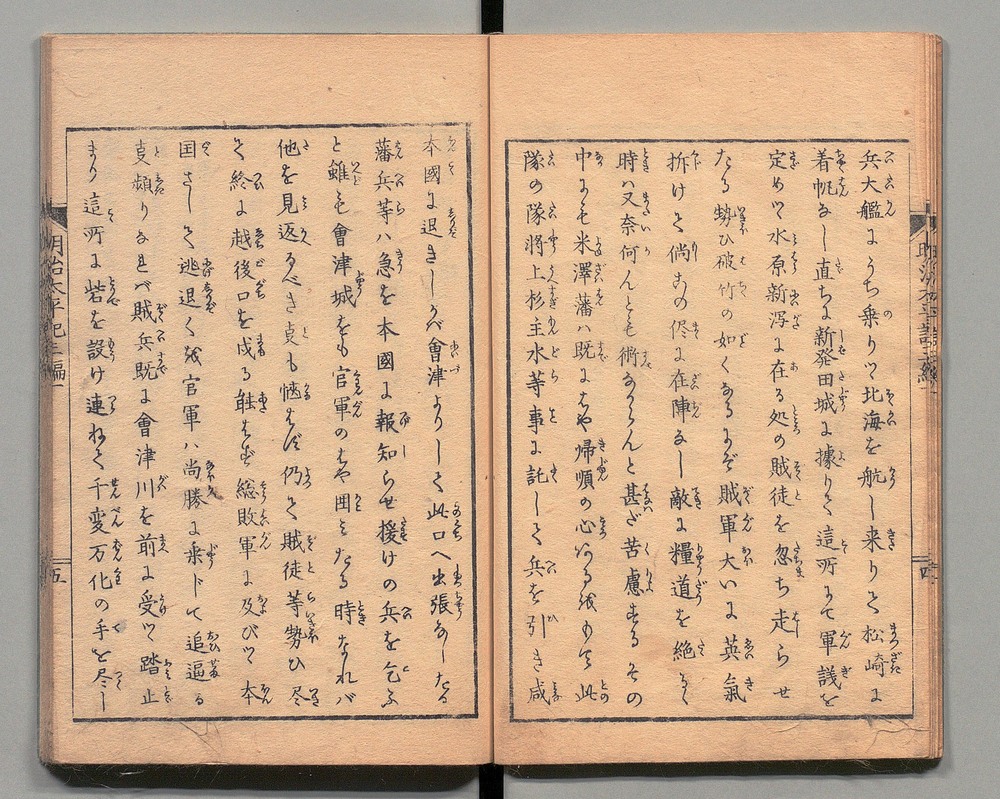 兵大艦にうち乗りつ北海を航し来りて松崎に
着帆なし直ちに新発田城に據りて這所にて軍議を
定めつ水原新泻に在る処の賊徒を忽ち走らせ
たる勢ひ破竹の如くなるにぞ賊軍大いに英氣
折けて倘この侭に在陣なし敵に糧道を絶るゝ
時ハ又奈何んとも術あらんと甚だ苦慮するその
中にも米澤藩ハ既にはや帰順の心ある故もて此
隊の隊将上杉主水等事に託して兵を引き咸
四
本國に退きしかバ會津よりして此口へ出張なしたる
藩兵等ハ急を本國に報知らせ援けの兵を乞ふ
と雖も會津城をも官軍のはや囲みたる時なれバ
他を見返るべき㕝も愜はず仍て賊徒等勢ひ尽
て終に越後口を戍る能はず総敗軍に及びつ本
国さして逃退くを官軍ハ尚勝に乗じて追逼る
㕝頻りなれバ賊兵既に會津川を前に受つ踏止
まり這所に砦を設け連ねて千変万化の手を尽し
明治太平記二編一
五